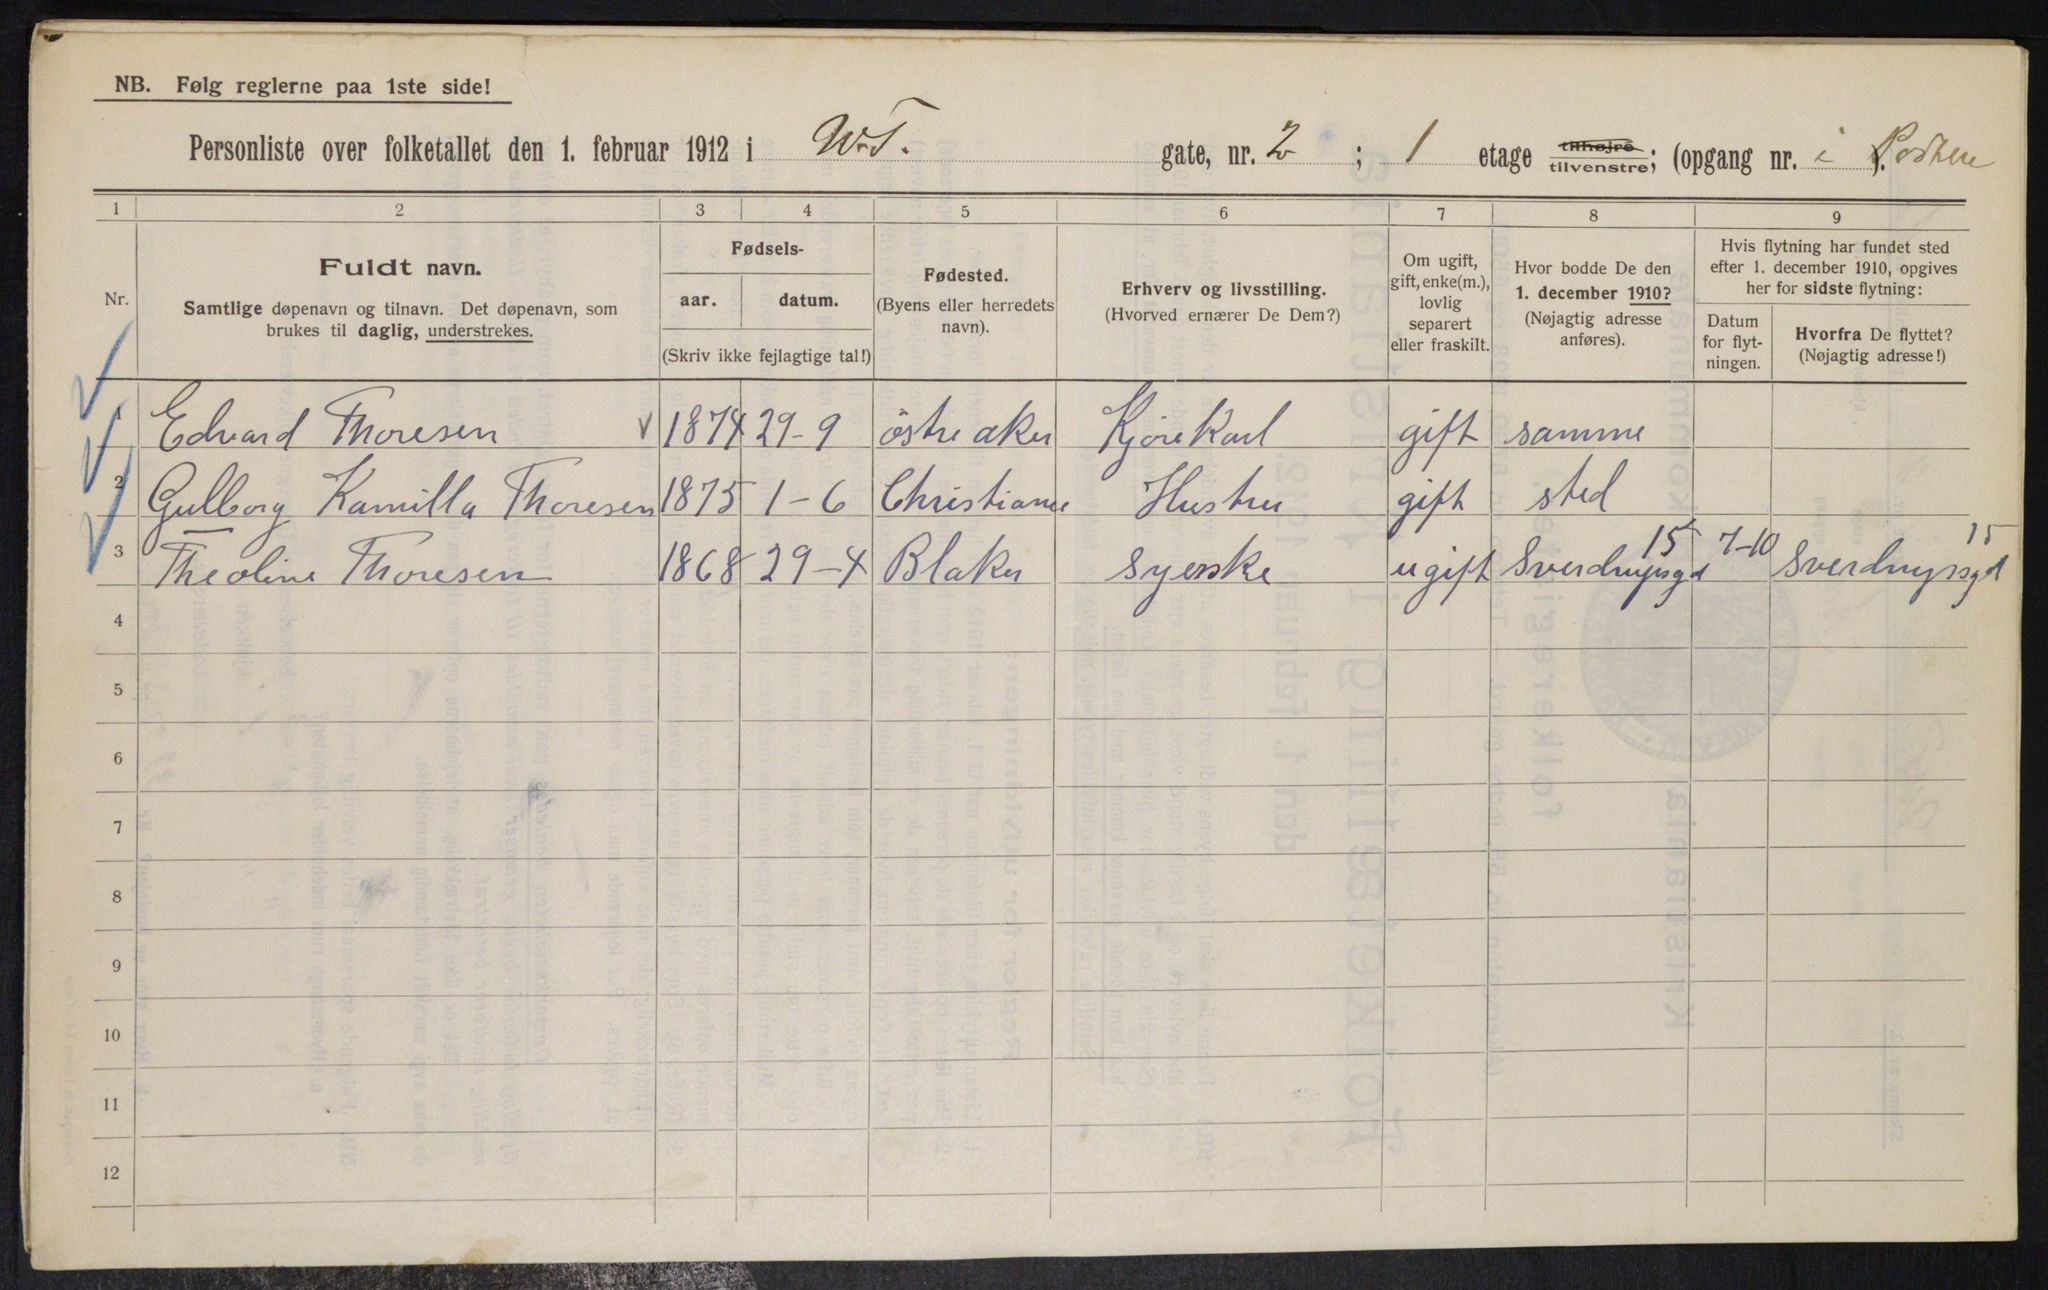 NB. Følg reglerne paa 1ste side!
Personliste over folketallet den 1. februar 1912 i W.T. gate, nr. 2 ; 1 etage tilhøjre tilvenstre; (opgang nr. i ).
1 2 3 4 5 6 7 8 9
Nr.
Fuldt navn.
Samtlige døpenavn og tilnavn. Det døpenavn, som
brukes til daglig, understrekes.
Fødsels-
aar. datum.
(Skriv ikke fejlagtige tal!)
Fødested.
(Byens eller herredets
navn).
Erhverv og livsstilling.
(Hvorved ernærer De Dem?)
Om ugift,
gift, enke(m.),
lovlig
separert
eller fraskilt.
Hvor bodde De den
1. december 1910?
(Nøjagtig adresse
anføres).
Hvis flytning har fundet sted
efter 1. december 1910, opgives
her for sidste flytning:
Datum
for flyt-
ningen.
Hvorfra De flyttet?
(Nøjagtig adresse!)
1 Edvard Thoresen 1874 29-9 östre aker Kjörekarl gift samme
2 Gulborg Kamilla Thoresen 1875 1-6 Christiania Hustru gift sted
3 Theoline Thoresen 1868 29-4 Blaker Syerske ugift Sverdrupsgd 15 7-10 Sverdrupsgd 15
4
5
6
7
8
9
10
11
12